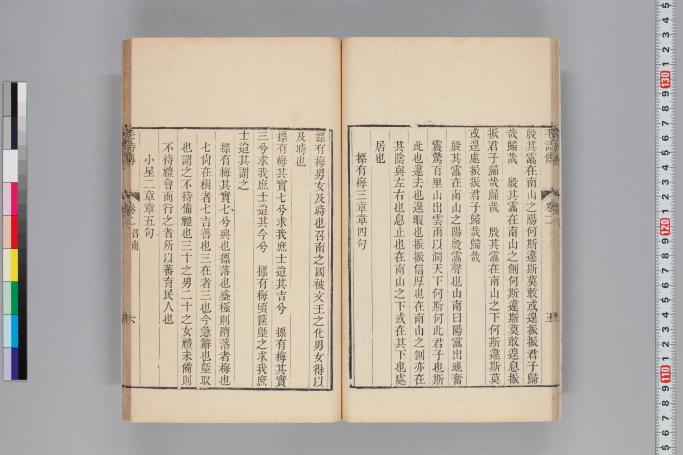 殷其靁在南山之陽何斯違斯莫敢或遑振振君子歸
哉歸哉　殷其靁在南山之側何斯違斯莫敢遑息振
振君子歸哉歸哉　殷其靁在南山之下何斯違斯莫
或遑處振振君子歸哉歸哉
殷其靁在南山之陽殷靁聲也山南曰陽靁出地奮
震驚百里山出雲雨以潤天下何斯何此君子也斯
此也違去也遑暇也振振信厚也在南山之側亦在
其陰與左右也息止也在南山之下或在其下也處
居也
摽有梅三章章四句
摽有梅男女及時也召南之國被文王之化男女得以
及時也
摽有梅其實七兮求我庶士迨其吉兮　摽有梅其實
三兮求我庶士迨其今兮　摽有梅頃筐塈之求我庶
士迨其謂之
摽有梅其實七兮興也摽落也盛極則隋落者梅也
七尙在樹者七吉善也三在者三也今急辭也塈取
也謂之不待備禮也三十之男二十之女禮未備則
不待禮會而行之者所以蕃育民人也
小星二章章五句
六
130
120
110